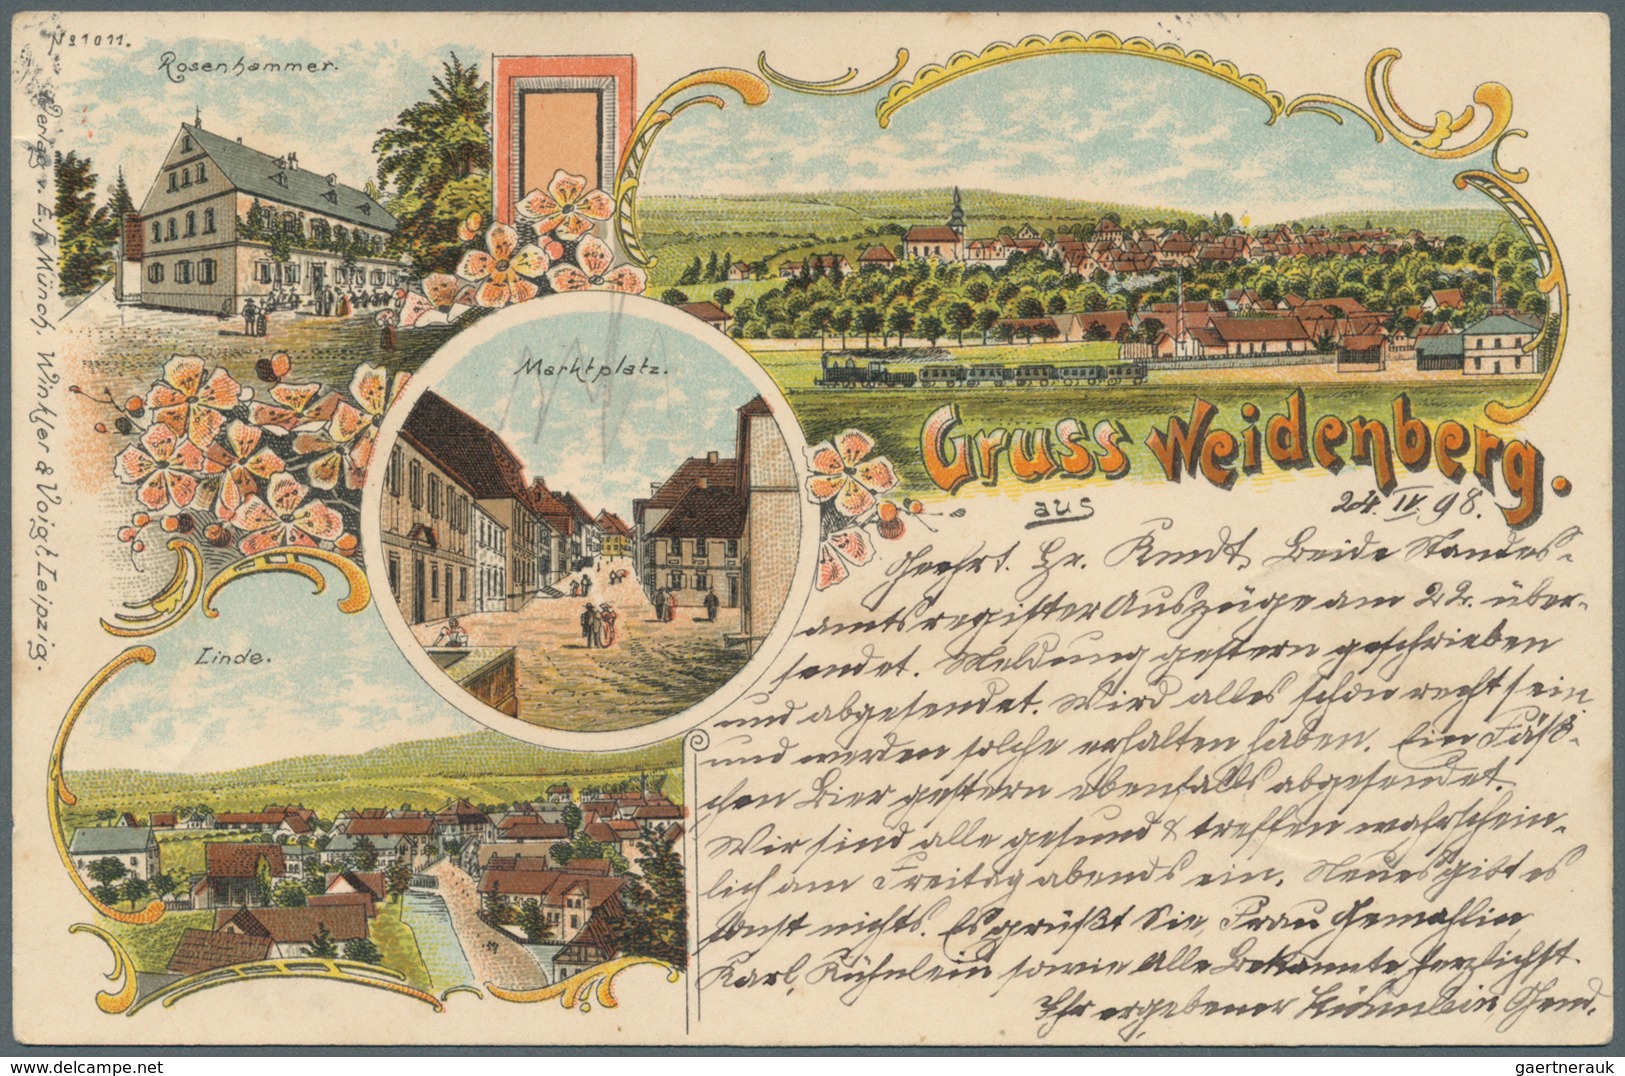 No 1011.
Rosenhammer.
Verlag v. E. Münch, Winkler & Voigt Leipzig.
Marktplatz.
Gruss Weidenberg.
aus
24. IV. 98.
Geehrt. Hr. Beide Standes-
amtsregister Auszüge am 22. über-
sendet. Meldung gestern geschrieben
und abgesendet. Wird alles schon recht sein
und werden solche erhalten haben. Ein Fäß-
chen Bier gestern ebenfalls abgesendet.
Wir sind alle gesund & treffen wahrschein-
lich am Freitag abends ein. Neues gibt es
sonst nichts. Es grüßt Sie, Frau Gemahlin,
Karl, Kühnlein sowie Alle Bekannte herzlichst
Ihr ergebener Kühnlein
Linde.
gaertnerauk @ delcampe.net